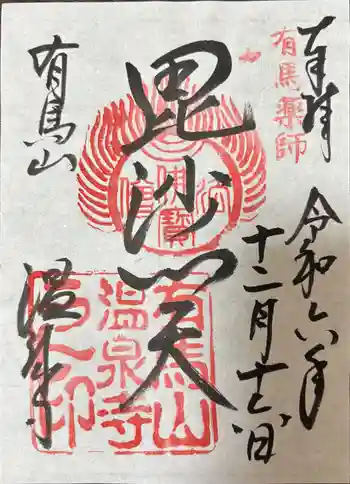 奉拝
有馬薬師
令和六年
十二月十七日
毘沙門天
有馬山
温泉寺
有馬山
温泉寺
之印